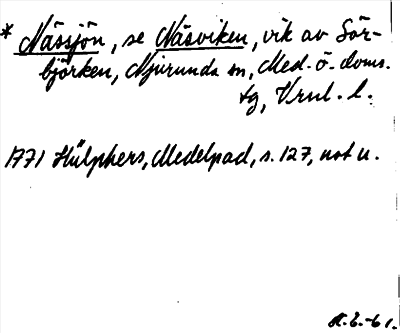 * Nässjön, se Näsviken, vik av Sör-
björken, Njurunda sn, Med. ö. doms.
tg, Vrnl. l.
1771 Hülphers, Medelpad, s. 127, not u.